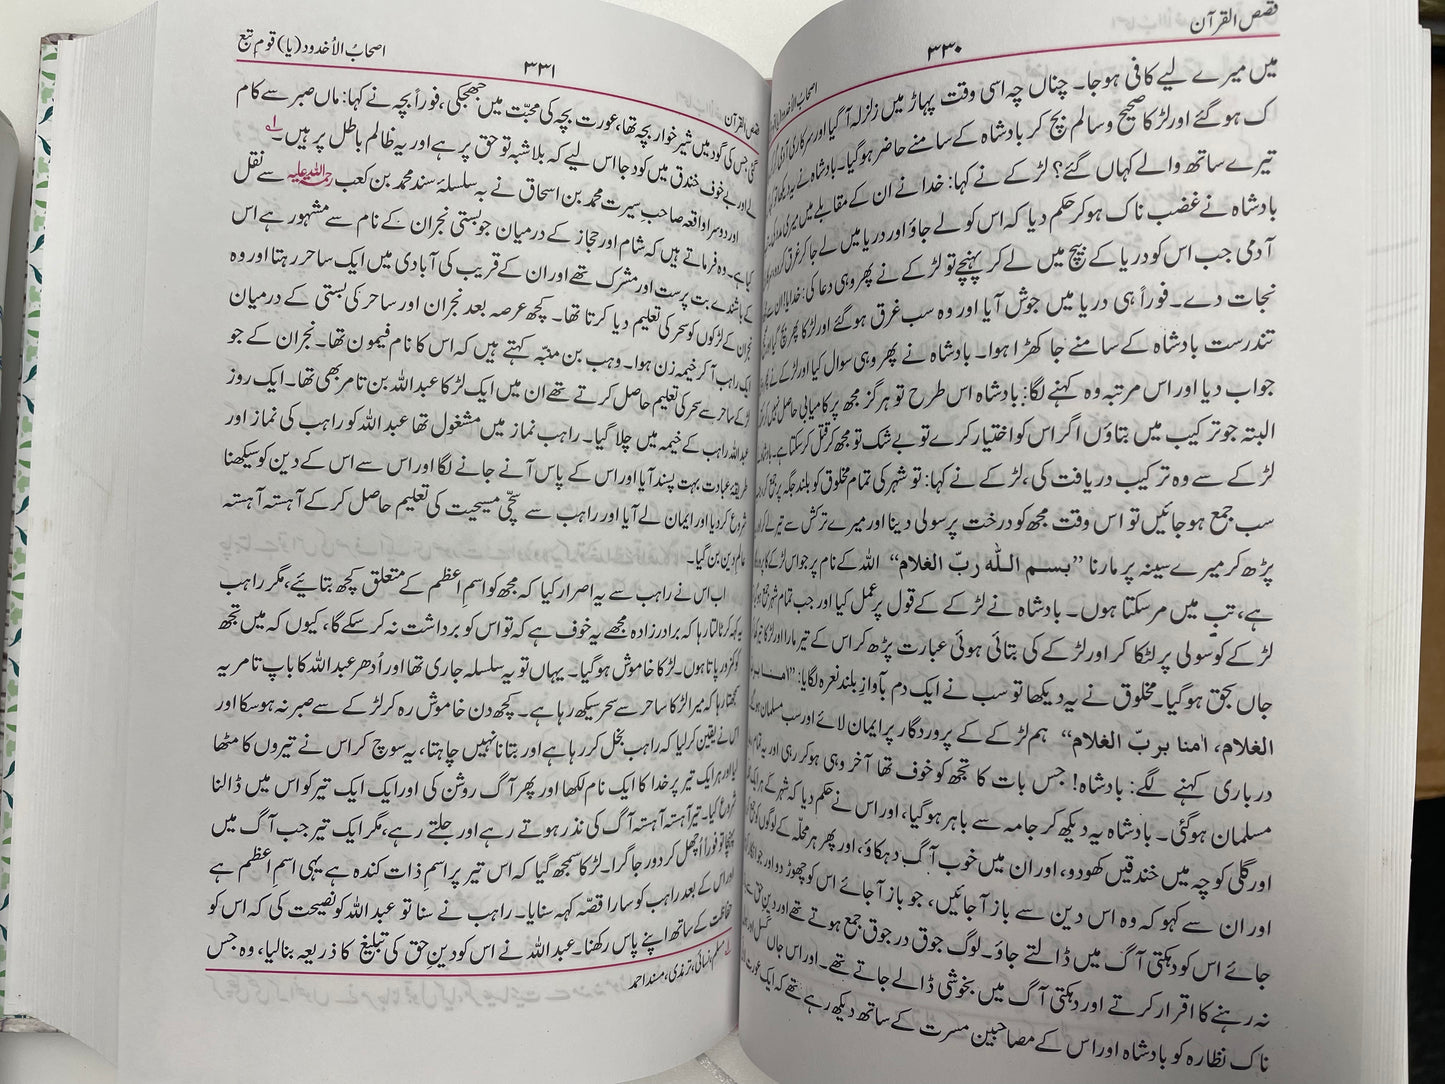 قصص القرآن
۳۳۰
اصحابُ الأخدود
میں میرے لیے کافی ہوجا۔ چناں چہ اسی وقت پہاڑ میں زلزلہ آگیا اور سرکاری آدمی
ک ہوگئے اور لڑکا صحیح وسالم بچ کر بادشاہ کے سامنے حاضر ہوگیا۔ بادشاہ نے یہ دیکھا تو
تیرے ساتھ والے کہاں گئے؟ لڑکے نے کہا: خدا نے ان کے مقابلے میں میری مدد کی
بادشاہ نے غضب ناک ہوکر حکم دیا کہ اس کو لے جاؤ اور دریا میں لے جا کر غرق کردو
آدمی جب اس کو دریا کے بیچ میں لے کر پہنچے تو لڑکے نے پھر وہی دعا کی: خدایا! ان سے
نجات دے۔ فوراً ہی دریا میں جوش آیا اور وہ سب غرق ہوگئے اور لڑکا پھر بچ گیا
تندرست بادشاہ کے سامنے جا کھڑا ہوا۔ بادشاہ نے پھر وہی سوال کیا اور لڑکے نے
جواب دیا اور اس مرتبہ وہ کہنے لگا: بادشاہ اس طرح تو ہرگز مجھ پر کامیابی حاصل نہیں کر
البتہ جو ترکیب میں بتاؤں اگر اس کو اختیار کرے تو بے شک تو مجھ کو قتل کرسکتا ہے۔
لڑکے سے وہ ترکیب دریافت کی، لڑکے نے کہا: تو شہر کی تمام مخلوق کو بلند جگہ پر جمع کر
سب جمع ہوجائیں تو اس وقت مجھ کو درخت پر سولی دینا اور میرے ترکش سے تیر لے کر
پڑھ کر میرے سینہ پر مارنا ”بسم اللہ ربّ الغلام“ اللہ کے نام پر جو اس لڑکے کا
ہے، تب میں مرسکتا ہوں۔ بادشاہ نے لڑکے کے قول پر عمل کیا اور جب تمام شہر جمع
لڑکے کو سُولی پر لٹکا کر اور لڑکے کی بتائی ہوئی عبارت پڑھ کر اس کے تیر مارا اور لڑکا
جاں بحق ہوگیا۔ مخلوق نے یہ دیکھا تو سب نے ایک دم بآوازِ بلند نعرہ لگایا: ”اٰمنا
الغلام، اٰمنا بربّ الغلام“ ہم لڑکے کے پروردگار پر ایمان لائے اور سب مسلمان
درباری کہنے لگے: بادشاہ! جس بات کا تجھ کو خوف تھا آخر وہی ہوکر رہی اور یہ تمام
مسلمان ہوگئی۔ بادشاہ یہ دیکھ کر جامہ سے باہر ہوگیا، اور اس نے حکم دیا کہ شہر کے ہر ایک
اور گلی کوچہ میں خندقیں کھودو، اور ان میں خوب آگ دہکاؤ، اور پھر ہر محلّہ کے لوگوں کو
اور ان سے کہو کہ وہ اس دین سے باز آجائیں، جو باز آجائے اس کو چھوڑ دو اور جو
جائے اس کو دہکتی آگ میں ڈالتے جاؤ۔ لوگ جوق در جوق جمع ہوتے تھے اور دینِ حق سے
نہ رہنے کا اقرار کرتے اور دہکتی آگ میں بخوشی ڈالے جاتے تھے۔ اور اس جاں گسل اور
ناک نظارہ کو بادشاہ اور اس کے مصاحبین مسرت کے ساتھ دیکھ رہے تھے کہ ایک عورت
قصص القرآن
۳۳۱
اصحابُ الأخدود (یا) قومِ تبع
گئی جس کی گود میں شیرخوار بچہ تھا، عورت بچہ کی محبّت میں جھجکی، فوراً بچہ نے کہا: ماں صبر سے کام
لے اور بے خوف خندق میں کود جا اس لیے کہ بلاشبہ تو حق پر ہے اور یہ ظالم باطل پر ہیں۔ ؎۱
اور دوسرا واقعہ صاحب سیرت محمد بن اسحاق نے بہ سلسلۂ سند محمد بن کعب رحمۃ اللہ علیہ سے نقل
کیا ہے۔ وہ فرماتے ہیں کہ شام اور حجاز کے درمیان جو بستی نجران کے نام سے مشہور ہے اس
کے باشندے بت پرست اور مشرک تھے اور ان کے قریب کی آبادی میں ایک ساحر رہتا اور وہ
نجران کے لڑکوں کو سحر کی تعلیم دیا کرتا تھا۔ کچھ عرصہ بعد نجران اور ساحر کی بستی کے درمیان
ایک راہب آکر خیمہ زن ہوا۔ وہب بن منبّہ کہتے ہیں کہ اس کا نام فیمون تھا۔ نجران کے جو
لڑکے ساحر سے سحر کی تعلیم حاصل کرتے تھے ان میں ایک لڑکا عبداللہ بن تامر بھی تھا۔ ایک روز
عبداللہ راہب کے خیمہ میں چلا گیا۔ راہب نماز میں مشغول تھا عبداللہ کو راہب کی نماز اور
طریقۂ عبادت بہت پسند آیا اور اس کے پاس آنے جانے لگا اور اس سے اس کے دین کو سیکھنا
شروع کردیا اور ایمان لے آیا اور راہب سے سچّی مسیحیت کی تعلیم حاصل کرکے آہستہ آہستہ
عالمِ دین بن گیا۔
اب اس نے راہب سے یہ اصرار کیا کہ مجھ کو اسمِ اعظم کے متعلق کچھ بتائیے، مگر راہب
یہ کہہ کر ٹالتا رہا کہ برادرزادہ مجھے یہ خوف ہے کہ تو اس کو برداشت نہ کرسکے گا، کیوں کہ میں تجھ
کو کمزور پاتا ہوں۔ لڑکا خاموش ہوگیا۔ یہاں تو یہ سلسلہ جاری تھا اور اُدھر عبداللہ کا باپ تامر یہ
سمجھتا رہا کہ میرا لڑکا ساحر سے سحر سیکھ رہا ہے۔ کچھ دن خاموش رہ کر لڑکے سے صبر نہ ہوسکا اور
اس نے یقین کرلیا کہ راہب بخل کر رہا ہے اور بتانا نہیں چاہتا، یہ سوچ کر اس نے تیروں کا مٹھا
لیا اور ہر ایک تیر پر خدا کا ایک نام لکھا اور پھر آگ روشن کی اور ایک ایک تیر کو اس میں ڈالنا
شروع کیا۔ تیر آہستہ آہستہ آگ کی نذر ہوتے رہے اور جلتے رہے، مگر ایک تیر جب آگ میں
پہنچا تو فوراً اُچھل کر دور جاگرا۔ لڑکا سمجھ گیا کہ اس تیر پر اسمِ ذات کندہ ہے یہی اسمِ اعظم ہے
اور اس کے بعد راہب کو سارا قصّہ کہہ سنایا۔ راہب نے سنا تو عبداللہ کو نصیحت کی کہ اس کو
حفاظت کے ساتھ اپنے پاس رکھنا۔ عبداللہ نے اس کو دینِ حق کی تبلیغ کا ذریعہ بنالیا، وہ جس
؎۱ مسلم، نسائی، ترمذی، مسند احمد